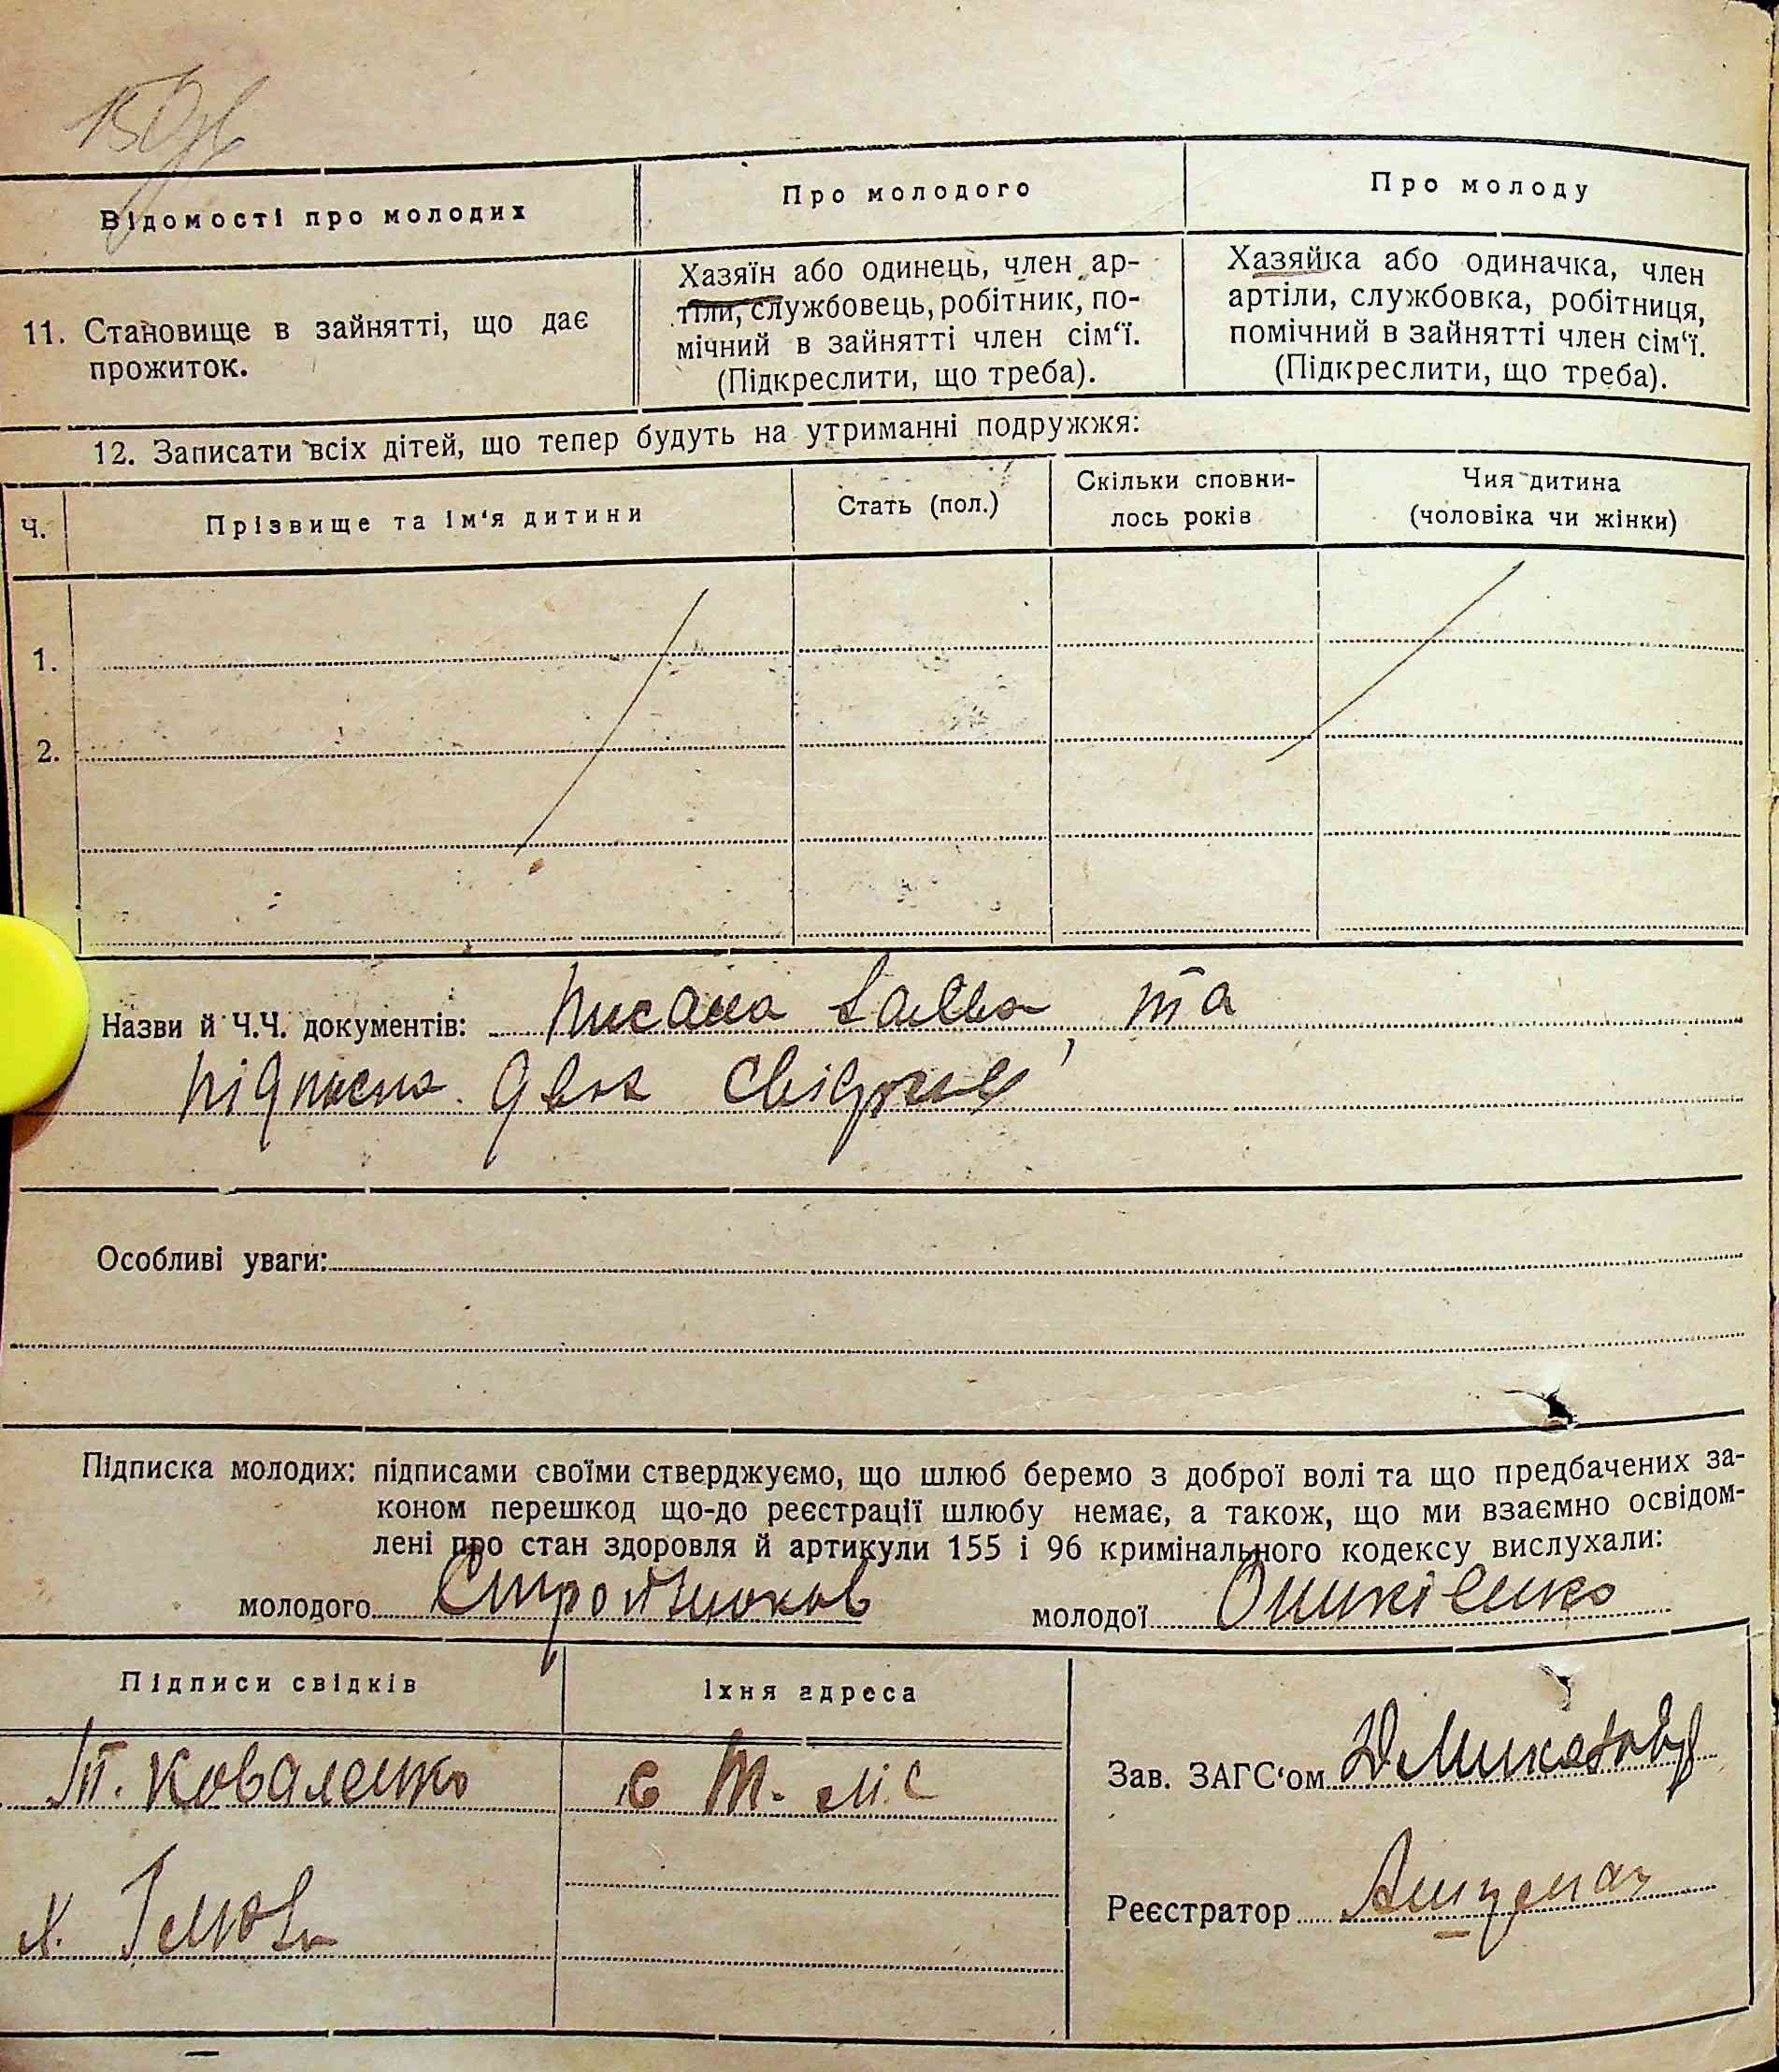 Відомості про молодих
Про молодого
Про молоду
11. Становище в зайнятті, що дає
прожиток.
Хазяїн або одинець, член ар-
тіли, службовець, робітник, по-
мічний в зайнятті член сім‘ї.
(Підкреслити, що треба).
Хазяйка або одиначка, член
артіли, службовка, робітниця,
помічний в зайнятті член сім‘ї.
(Підкреслити, що треба).
12. Записати всіх дітей, що тепер будуть на утриманні подружжя:
Ч.
Прізвище та ім‘я дитини
Стать (пол.)
Скільки сповни-
лось років
Чия дитина
(чоловіка чи жінки)
1.
2.
Назви й Ч.Ч. документів: писана заява, та
підписка двох свідків
Особливі уваги:
Підписка молодих: підписами своїми стверджуємо, що шлюб беремо з доброї волі та що предбачених за-
коном перешкод що-до реєстрації шлюбу немає, а також, що ми взаємно освідом-
лені про стан здоровля й артикули 155 і 96 кримінального кодексу вислухали:
молодого
молодої
Підписи свідків
Їхня адреса
Т. Коваленко
Зав. ЗАГС‘ом
Реєстратор